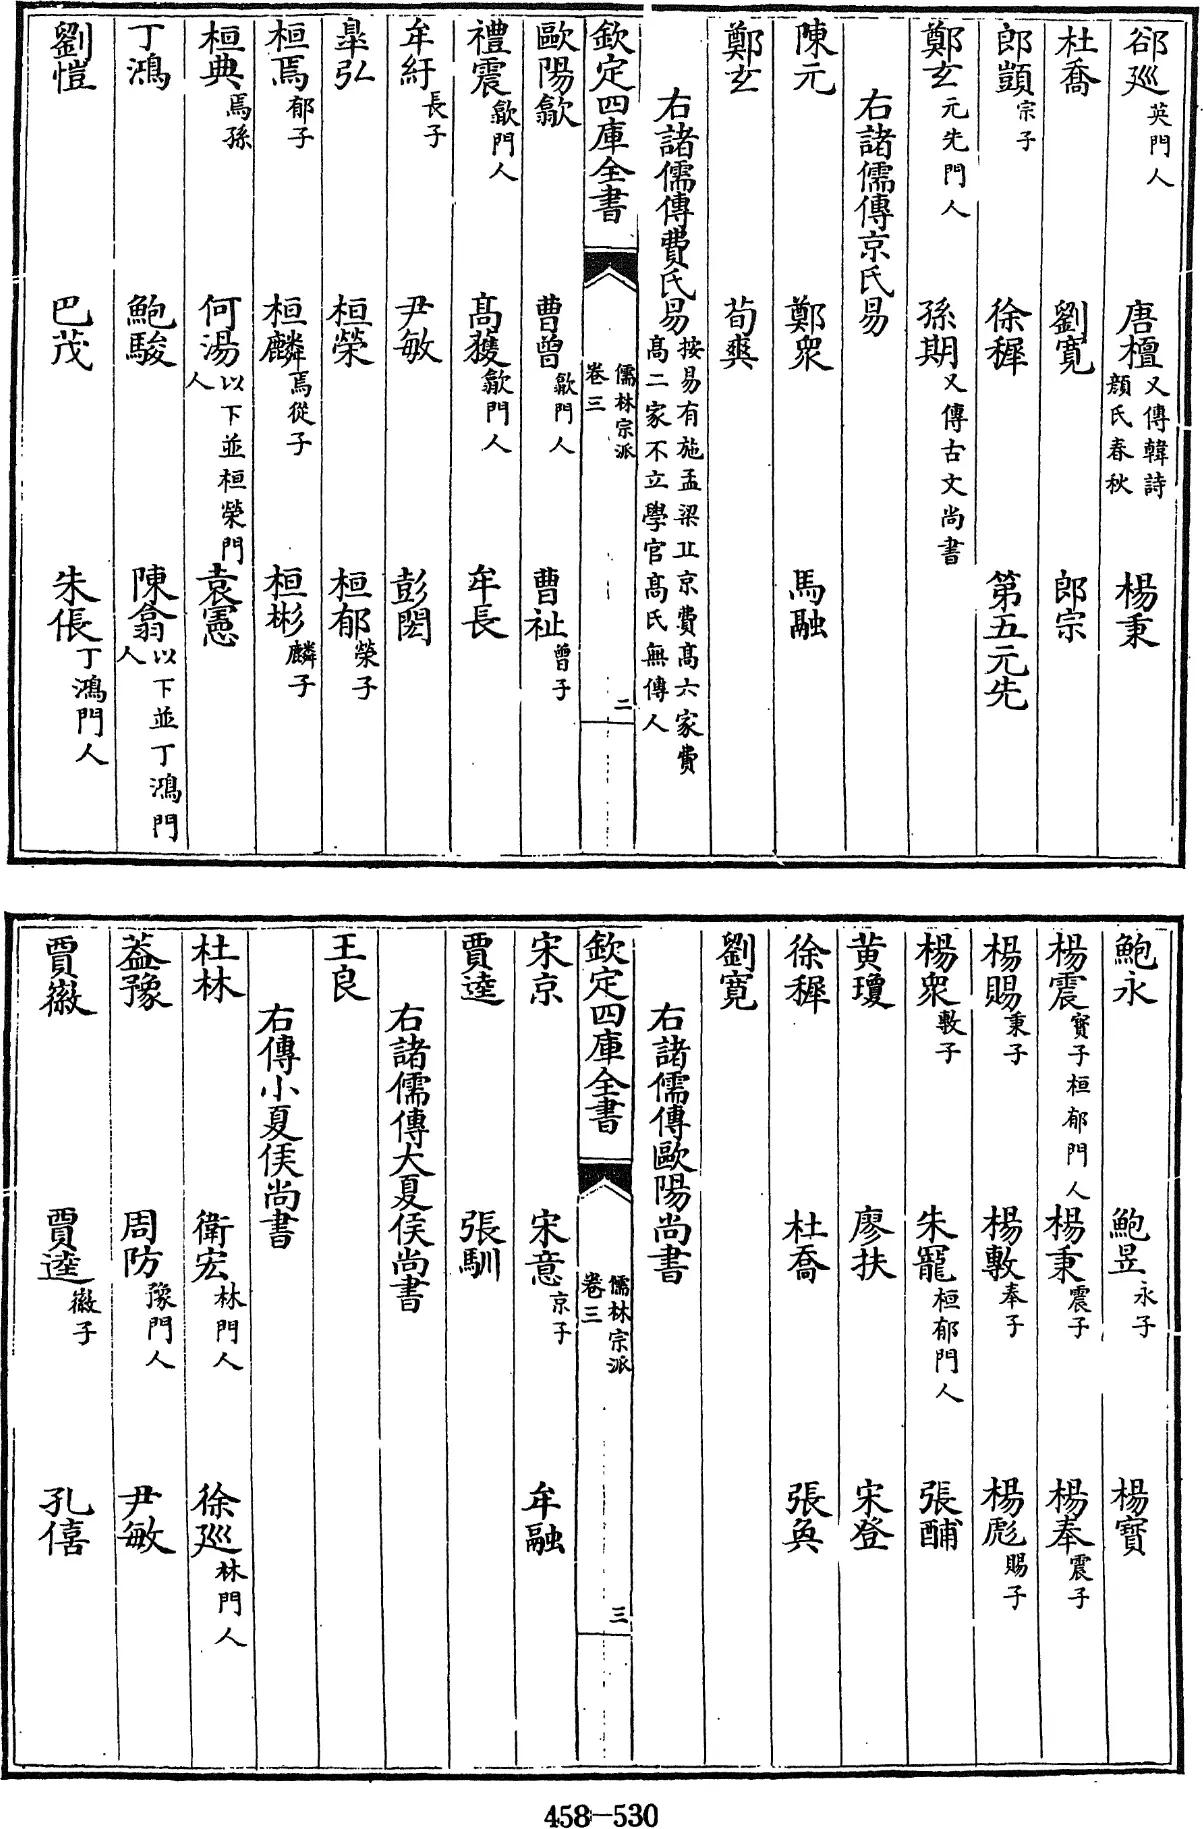 郤廵英門人　唐檀又傳韓詩顔氏春秋　楊秉
杜喬　劉寛　郎宗
郎顗宗子　徐穉　第五元先
鄭玄元先門人　孫期又傳古文尚書
右諸儒傳京氏易
陳元　鄭衆　馬融
鄭玄　荀爽
右諸儒傳費氏易按易有施孟梁丘京費高六家費高二家不立學官高氏無傳人
欽定四庫全書　儒林宗派卷三　二
歐陽歙　曹曾歙門人　曹祉曾子
禮震歙門人　高獲歙門人　牟長
牟紆長子　尹敏　彭閎
臯弘　桓榮　桓郁榮子
桓焉郁子　桓麟焉從子　桓彬麟子
桓典焉孫　何湯以下並桓榮門人　袁憲
丁鴻　鮑駿　陳弇以下並丁鴻門人
劉愷　巴茂　朱倀丁鴻門人
鮑永　鮑昱永子　楊寳
楊震寳子桓郁門人　楊秉震子　楊奉震子
楊賜秉子　楊敷奉子　楊彪賜子
楊衆敷子　朱寵桓郁門人　張酺
黄瓊　廖扶　宋登
徐穉　杜喬　張奐
劉寛
右諸儒傳歐陽尚書
欽定四庫全書　儒林宗派卷三　三
宋京　宋意京子　牟融
賈逵　張馴
右諸儒傳大夏侯尚書
王良
右傳小夏侯尚書
杜林　衛宏林門人　徐廵林門人
葢豫　周防豫門人　尹敏
賈徽　賈逵徽子　孔僖
458-530